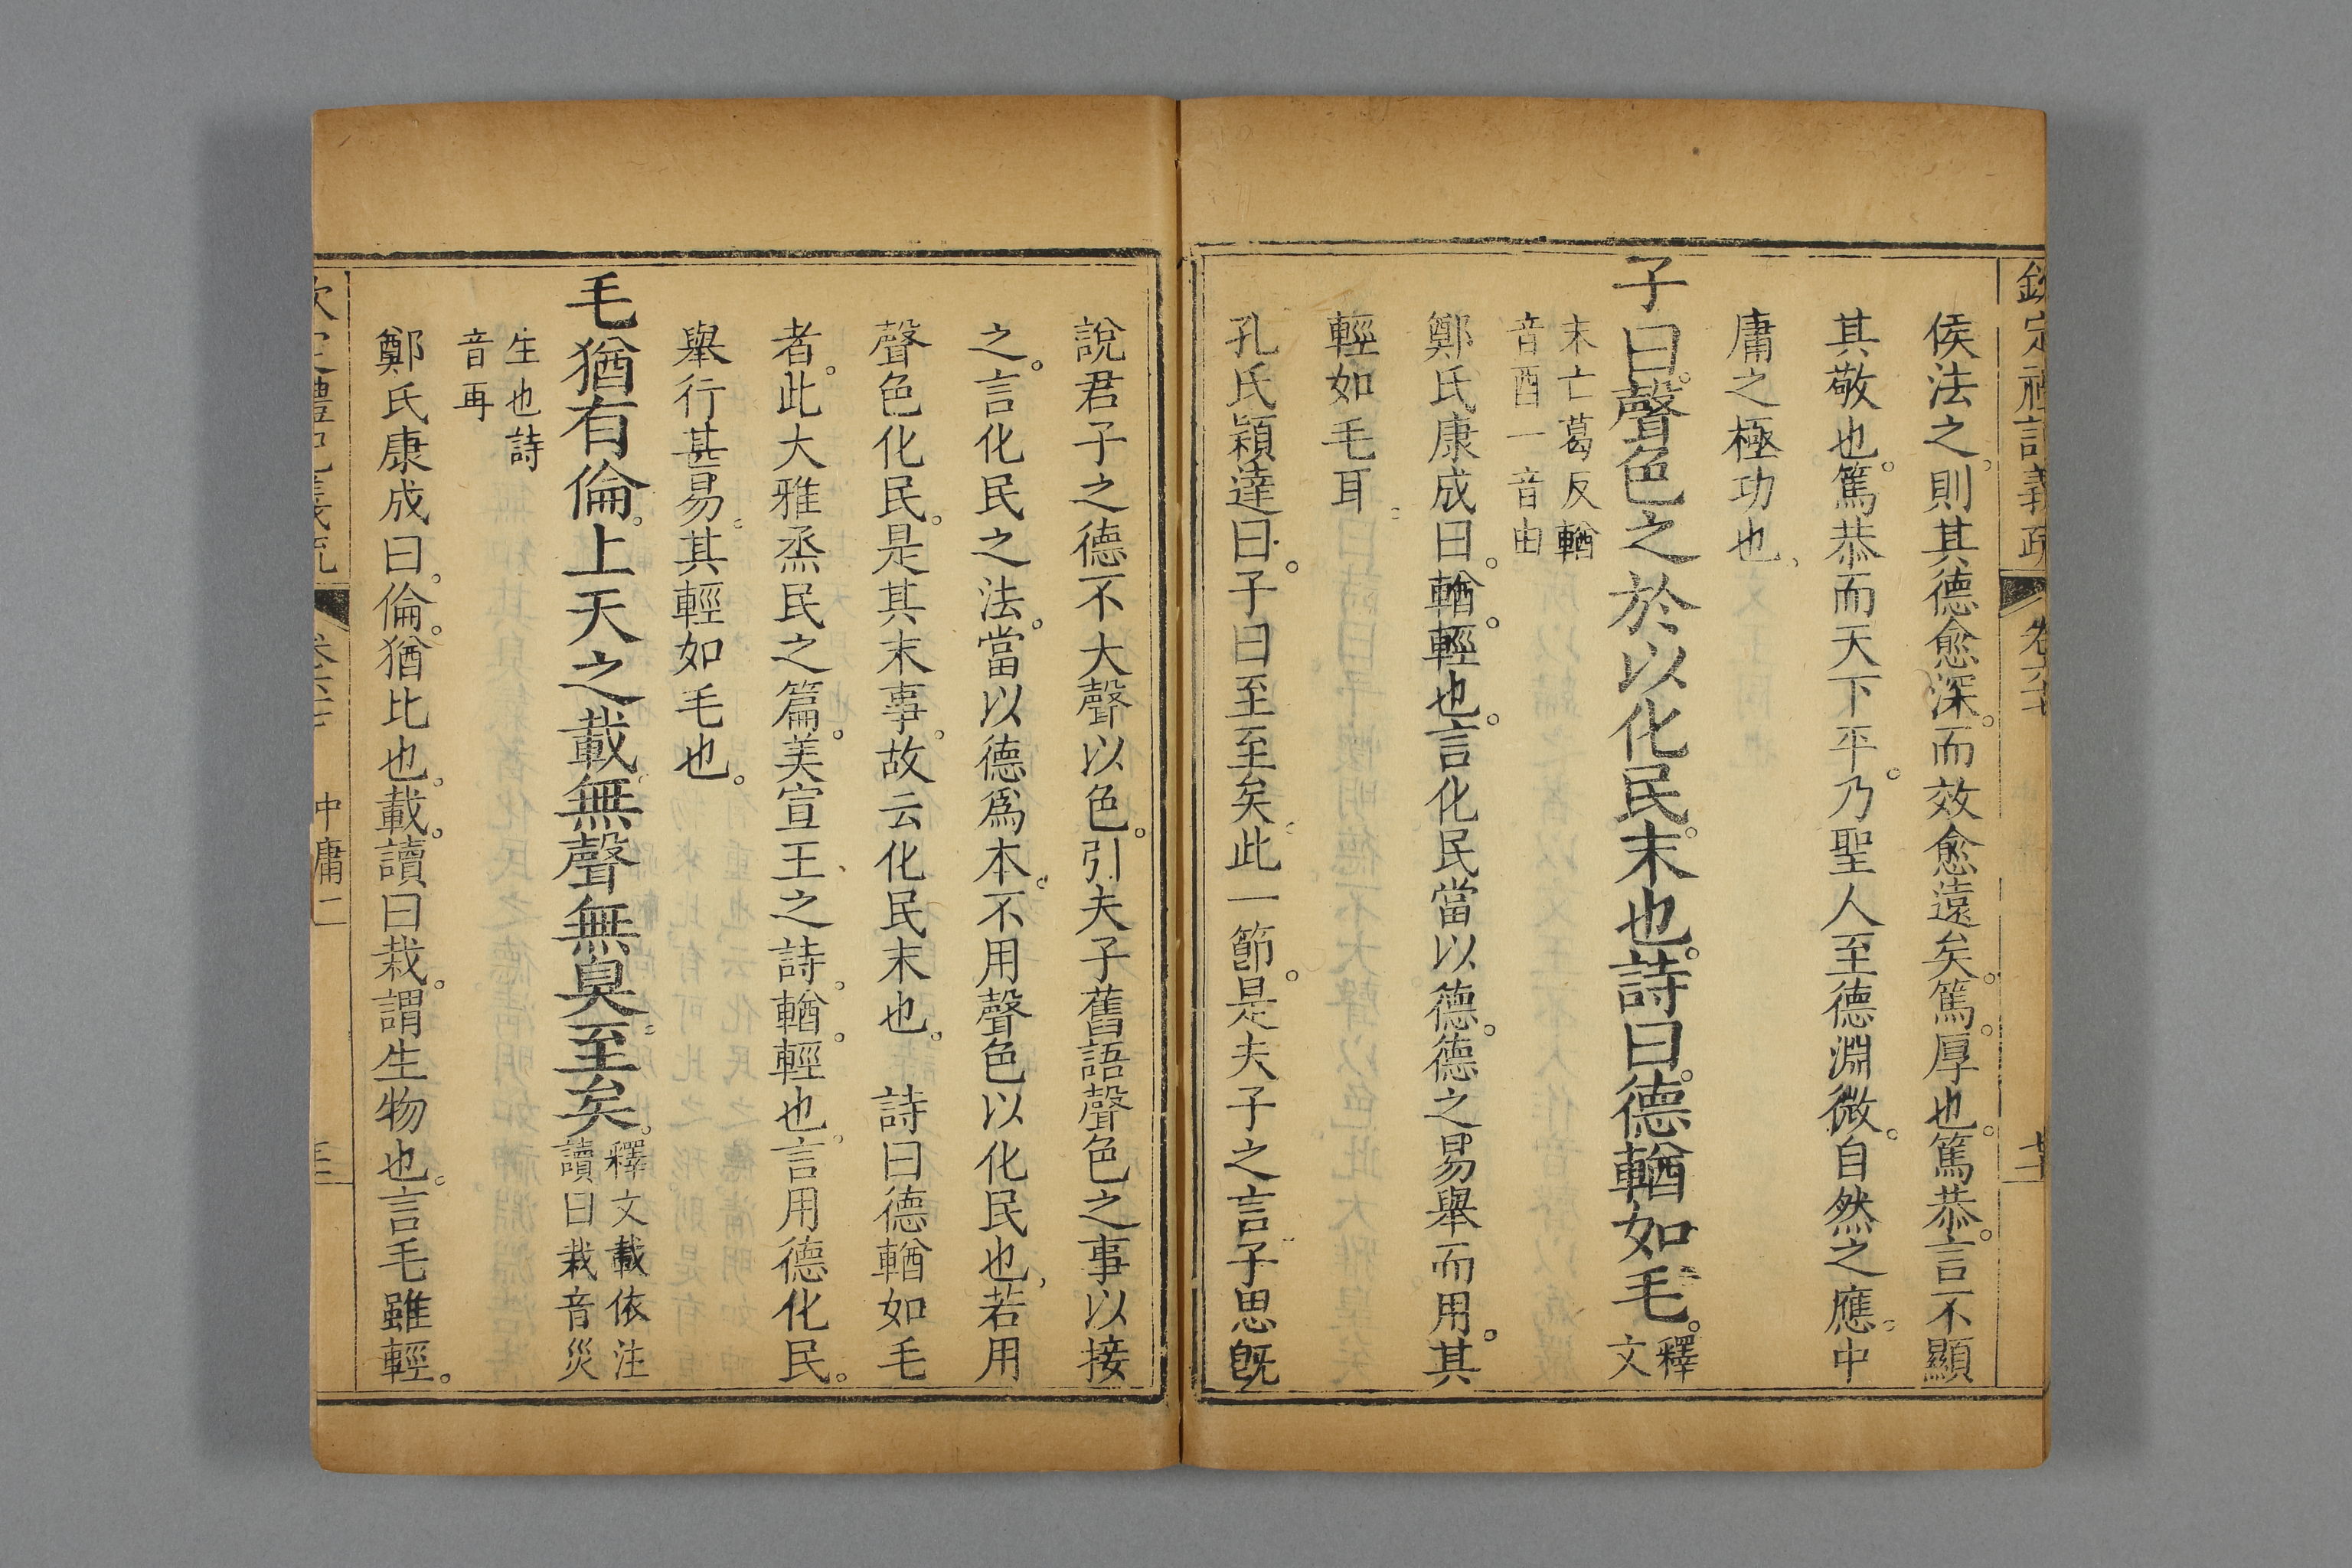 欽定禮記義疏 卷六七 廿二
侯法之則其德愈深而效愈遠矣篤厚也篤恭言不顯
其敬也篤恭而天下平乃聖人至德淵微自然之應中
庸之極功也
子曰聲色之於以化民末也詩曰德輶如毛釋文
末亡葛反輶
音酉一音由
鄭氏康成曰輶輕也言化民當以德德之易舉而用其
輕如毛耳
孔氏穎達曰子曰至至矣此一節是夫子之言子思既
說君子之德不大聲以色引夫子舊語聲色之事以接
之言化民之法當以德爲本不用聲色以化民也若用
聲色化民是其末事故云化民末也 詩曰德輶如毛
者此大雅烝民之篇美宣王之詩輶輕也言用德化民
舉行甚易其輕如毛也
毛猶有倫上天之載無聲無臭至矣釋文載依注
讀曰栽音災
生也詩
音再
鄭氏康成曰倫猶比也載讀曰栽謂生物也言毛雖輕
欽定禮記義疏 中庸二